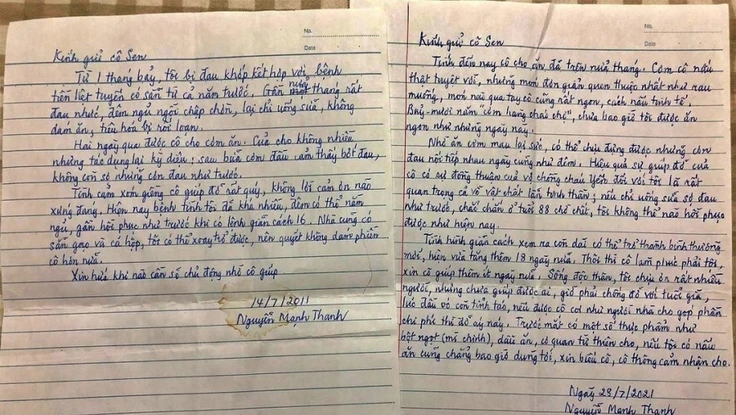 No.
Date
Kính gửi cô Sen
Từ 1 tháng bảy, tôi bị đau khớp kết hợp với bệnh
tiền liệt tuyến có sẵn từ cả năm trước. Gần nửa tháng rất
đau nhức, đêm ngủ ngồi chập chờn, lại chỉ uống sữa, không
dám ăn, tiêu hóa bị rối loạn.
Hai ngày qua được cô cho cơm ăn. Của cho không nhiều
nhưng tác dụng lại kỳ diệu: sau bữa cơm đầu cảm thấy bớt đau,
không cơn số những cơn đau như trước.
Tình cảm xóm giềng cô giúp đỡ rất quý, không lời cảm ơn nào
xứng đáng. Hiện nay bệnh tình tôi đã khá nhiều, đêm có thể nằm
ngủ, gần hồi phục như trước khi có lệnh giãn cách 16. Nhà cũng có
sẵn gạo và cá hộp, tôi có thể xoay trở được, nên quyết không dám phiền
cô hơn nữa.
Xin hứa khi nào cần sẽ chủ động nhờ cô giúp
14/7/2011
Nguyễn Mạnh Thanh
No.
Date
Kính gửi cô Sen
Tính đến nay cô cho ăn đã trên nửa tháng. Cơm cô nấu
thật tuyệt vời, những món đơn giản quen thuộc nhất như rau
muống, món nào qua tay cô cũng rất ngon, cách nấu tinh tế.
Bảy-mươi năm "cơm hàng cháo chợ", chưa bao giờ tôi được ăn
ngon như những ngày nay.
Nhờ ăn cơm mau lại sức, có thể chịu đựng được những cơn
đau nối tiếp nhau ngày cũng như đêm. Hiệu quả sự giúp đỡ của
cô có sự đồng thuận của vợ chồng cháu Yến đối với tôi là rất
quan trọng cả về vật chất lẫn tinh thần; nếu chỉ uống sữa sơ đau
như trước, chắc chắn ở tuổi 88 chờ chết, tôi không thể nào hồi phục
được như hiện nay.
Tình hình giãn cách xem ra còn dài có thể trở thành bình thường
mới, hiện vừa tăng thêm 18 ngày nữa. Thôi thì cô làm phước phải tội,
xin cô giúp thêm ít ngày nữa. Sống độc thân, tôi chịu ơn rất nhiều
người, nhưng chưa giúp được ai, giờ phải chống đỡ với tuổi già,
lúc đầu vô còn tỉnh táo, nếu được cô coi như người nhà cho góp phần
chi phí thì đỡ áy náy. Trước mắt có một số thực phẩm như
bột ngọt (mì chính), dầu ăn, cơ quan từ thiện cho, nếu tôi có nấu
ăn cũng chẳng bao giờ dùng tới, xin biếu cô, cô thông cảm nhận cho.
Ngày 28/7/2021
Nguyễn Mạnh Thanh